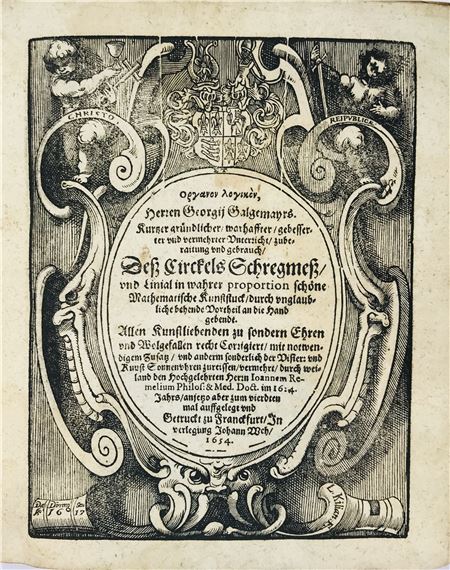 CHRISTO
REIPVBLICÆ
Οργανον λογικὸν,
Herren Georgij Galgemayrs.
Kurtzer gründlicher/ warhaffter/ gebesser-
ter vnd vermehrter Vnterricht/ zube-
raitung vnd gebrauch/
Deß Circkels Schregmeß/
vnd Linial in wahrer proportion schöne
Mathematische Kunststuck/ durch vnglaub-
liche behende Vortheil an die Hand
gebendt.
Allen Kunstliebenden zu sondern Ehren
vnd Wolgefallen recht Corrigiert/ mit notwen-
digem Zusatz/ vnd anderm sonderlich der Visier: vnd
Kunst Sonnenvhren zureissen/ vermehrt/ durch wei-
land den Hochgelehrten Herrn Ioannem Re-
melium Philos: & Med. Doct. im 1624.
Jahrs/ anjetzo aber zum vierdten
mal auffgelegt vnd
Getruckt zu Franckfurt/ In
verlegung Johann Weh/
1654.
L. Kilian F.